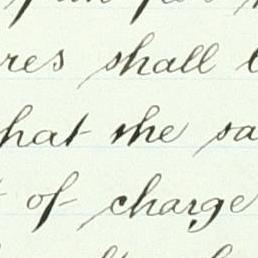 res shall
that the sa
of charge